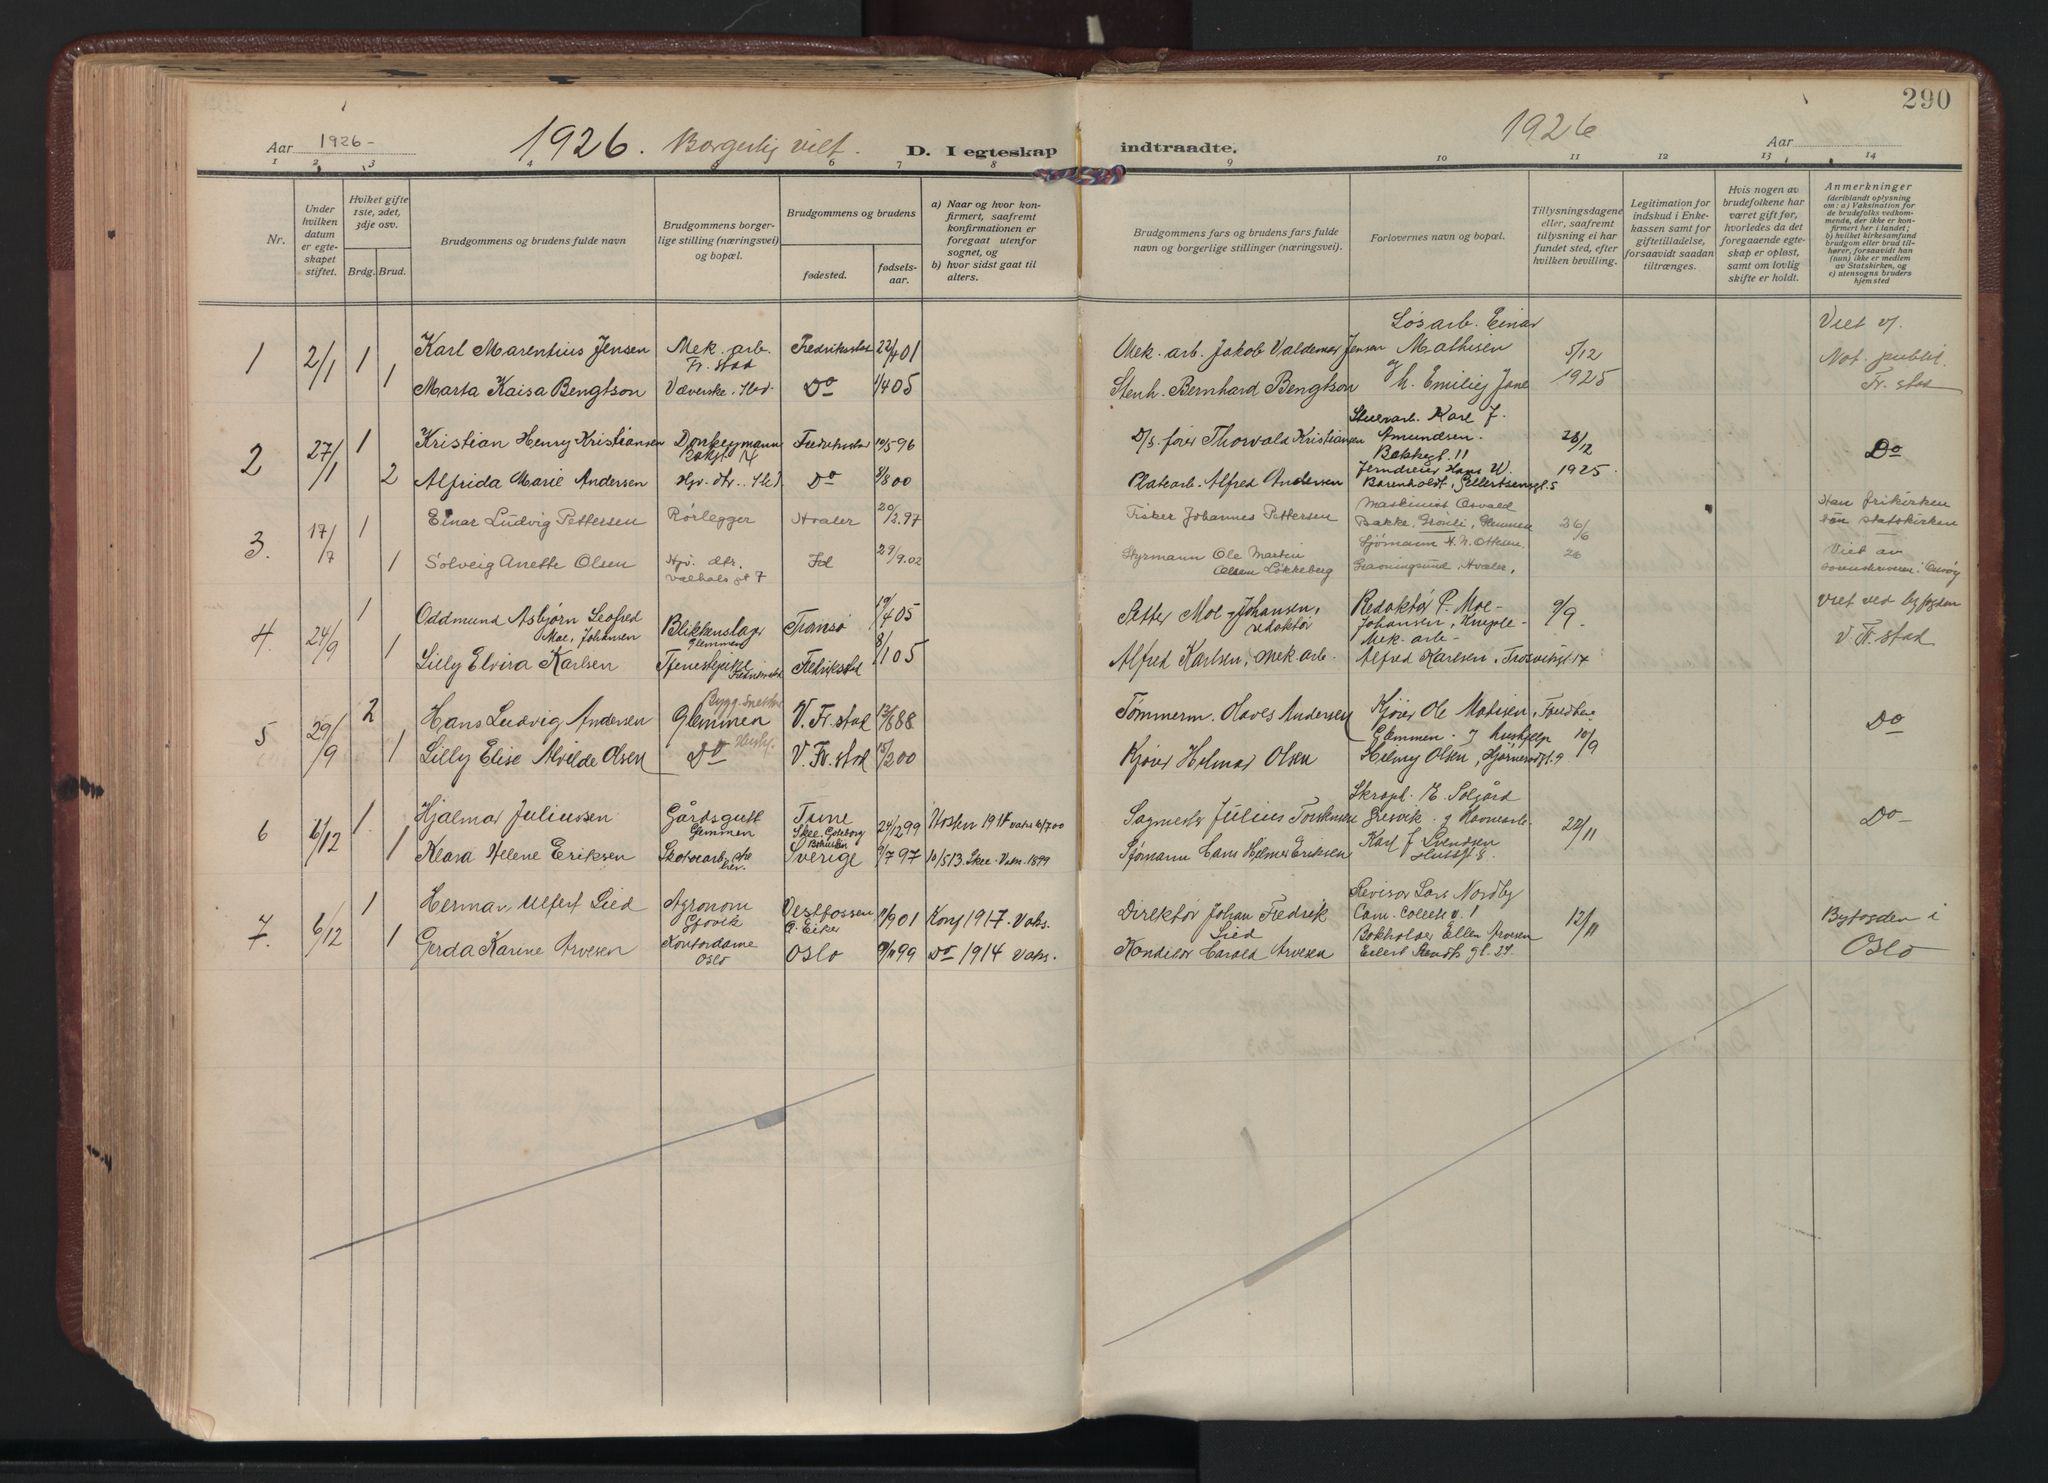 290
Aar 1926 -
1926. Borgerlig viet.
D. I egteskap indtraadte.
1926
Aar
1 2 3 4 6 7 8 9 10 11 12 13 14
Nr.
Under hvilken datum er egteskapet stiftet.
Hviket gifte 1ste, 2det, 3dje osv.
Brdg. Brud.
Brudgommens og brudens fulde navn
Brudgommens borgerlige stilling (næringsvei) og bopæl.
Brudgommens og brudens
fødested.
fødselsaar.
a) Naar og hvor konfirmert, saafremt konfirmationen er foregaat utenfor sognet, og
b) hvor sidst gaat til alters.
Brudgommens fars og brudens fars fulde navn og borgerlige stillinger (næringsvei).
Forlovernes navn og bopæl.
Tillysningsdagene eller, saafremt tillysning ei har fundet sted, efter hvilken bevilling.
Legitimation for indskud i Enkekassen samt for giftetilladelse, forsaavidt saadan tiltrænges.
Hvis nogen av brudefolkene har været gift før, hvorledes da det foregaaende egteskap er opløst, samt om lovlig skifte er holdt.
Anmerkninger (deriblandt oplysning om: a) Vaksination for de brudefolks vedkommende, der ikke er konfirmert her i landet; b) hvilket kirkesamfund brudgom eller brud tilhører, forsaavidt han (hun) ikke er medlem av Statskirken, og c) utensogns bruders hjemsted
1 2/1 1 Karl Marentius Jensen Mek. arb. Fr. stad Fredriksstad 22/4 01 Mek. arb. Jakob Valdemar Jensen Løsarb. Einar Mathisen 5/12 Viet v/ Not. publ.
1 Marta Kaisa Bengtson Væverske. Do 1/4 05 Stenh. Bernhard Bengtson og h. Emilie Jane 1925 Fr. stad
2 27/1 1 Kristian Henry Kristiansen Donkeymann Fredriksstad 10/5 96 D/s. fører Thorvald Kristiansen Karl J. Amundsen. Bakkegt. 11 28/12 Do
2 Alfrida Marie Andersen Hjv. dtr. Do 8/8 00 Platearb. Alfred Andersen Jerndreier Hans W. 1925.
3. 17/7 1 Einar Ludvig Pettersen Rørlegger Hvaler 20/2.97 Fisker Johannes Pettersen Maskinist Osvald Bakke, Glemmen 26/6 Han frikirken statskirken
1 Solveig Anette Olsen Hjv. dtr. Valhals gt 7 Id 29/9.02 Styrmann Ole Martin Olsen Løkkeberg Sjømann H. N. Ottesen. Hvaler, 26 Viet av
4. 24/9 1 Oddmund Asbjørn Leofred Moe, Johansen Blikkenslager Glemmen Tromsø 19/4 05 Petter Moe Johansen, redaktør Redaktør P. Moe-Johansen, 9/9. Viet ved byfogden
1 Lilly Elvira Karlsen Tjenestepike Fredriksstad 8/1 05 Alfred Karlsen, mek. arb. Mek. arb- Alfred Karlsen, Trosvikgt. 17 V. Fr. stad
5 29/9 2 Hans Ludvig Andersen Glemmen V. Fr. stad 12/8 88 Tømmerm. Olaves Andersen Kjører Ole Matisen, Glemmen. og hushjelp 10/9 Do
1 Lilly Elise Alvilde Olsen Do V. Fr. stad 15/2 00 Kjører Helmar Olsen Helmy Olsen,
6 6/12 1 Hjalmar Juliussen Gårdsgutt Glemmen Tune 24/12 99 Høsten 1914 vaks. 6/7 00 Sagmester Julius E. Solgård Gresvik. og Havnearb. 22/11 Do-
1 Klara Helene Eriksen Skofoarb. Skee. Goteborg Sverige 9/7 97 10/5 13. Skee. Vaks. 1899 Sjømann Hans Helmer Eriksen Karl J. Svendsen
7. 6/12 1 Herman Ulfert Lied Agronom Gjøvik Vestfossen Ø. Eiker 11/9 01 Konf 1917. Vaks. Direktør Johan Fredrik Lied Revisor Lars Nordby Cam. Colletts v. 1 12/11 Byfogden i Oslo
1 Gerda Karine Arvesen Kontordame Oslo Oslo 9/11 99 Do 1914 Vaks. Konditor Harald Arvesen Bokholder Ellen Arvesen Eilert Sundts gt. 27.